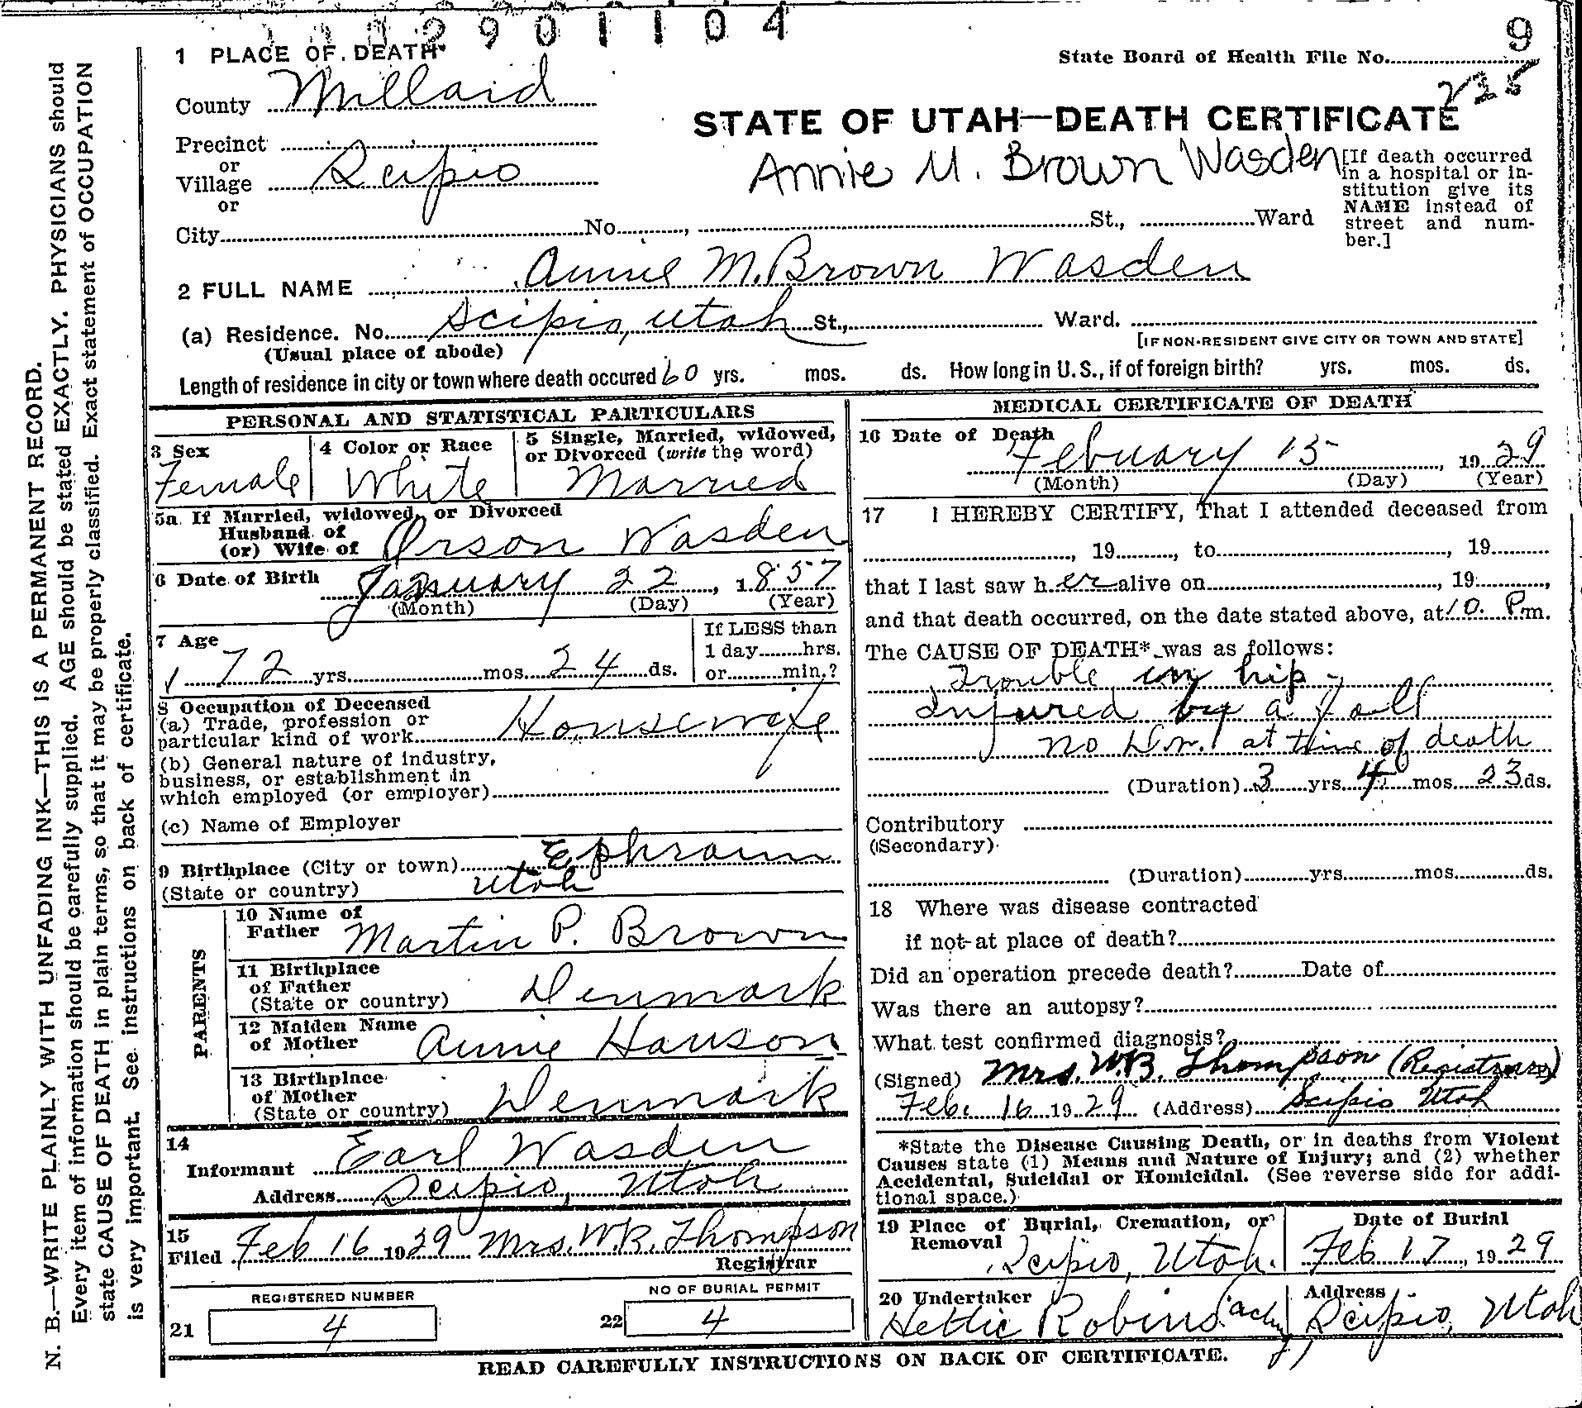 2901104
1 PLACE OF DEATH
State Board of Health File No. 9
235
County Millard
STATE OF UTAH—DEATH CERTIFICATE
Precinct
or
Village Scipio
or
Annie M. Brown Wasden
[If death occurred in a hospital or in-
stitution give its
NAME instead of
street and num-
ber.]
City No. , St., Ward
2 FULL NAME Annie M. Brown Wasden
(a) Residence. No. Scipio, Utah St., Ward.
(Usual place of abode) [IF NON-RESIDENT GIVE CITY OR TOWN AND STATE]
Length of residence in city or town where death occured 60 yrs. mos. ds. How long in U.S., if of foreign birth? yrs. mos. ds.
PERSONAL AND STATISTICAL PARTICULARS
3 Sex
Female
4 Color or Race
White
5 Single, Married, widowed,
or Divorced (write the word)
Married
5a. If Married, widowed, or Divorced
Husband of
(or) Wife of Orson Wasden
6 Date of Birth January 22, 1857
(Month) (Day) (Year)
7 Age
72 yrs. mos. 24 ds.
If LESS than
1 day hrs.
or min.?
8 Occupation of Deceased
(a) Trade, profession or
particular kind of work Housewife
(b) General nature of industry,
business, or establishment in
which employed (or employer)
(c) Name of Employer
9 Birthplace (City or town) Ephraim
(State or country) Utah
PARENTS
10 Name of
Father Martin P. Brown
11 Birthplace
of Father
(State or country) Denmark
12 Maiden Name
of Mother Annie Hanson
13 Birthplace
of Mother
(State or country) Denmark
14
Informant Earl Wasden
Address Scipio, Utah
15
Filed Feb 16 1929 Mrs. W.B. Thompson
Registrar
REGISTERED NUMBER
21 4
NO OF BURIAL PERMIT
22 4
MEDICAL CERTIFICATE OF DEATH
16 Date of Death
Febuary 15, 1929
(Month) (Day) (Year)
17 I HEREBY CERTIFY, That I attended deceased from
, 19 , to , 19
that I last saw h er alive on , 19 ,
and that death occurred, on the date stated above, at 10 P.m.
The CAUSE OF DEATH* was as follows:
Trouble in hip -
Injured by a fall
no Dr. at time of death
(Duration) 3 yrs. 4 mos. 23 ds.
Contributory
(Secondary)
(Duration) yrs. mos. ds.
18 Where was disease contracted
if not at place of death?
Did an operation precede death? Date of
Was there an autopsy?
What test confirmed diagnosis?
(Signed) Mrs. W.B. Thompson (Registrar)
Feb. 16 1929 (Address) Scipio Utah
*State the Disease Causing Death, or in deaths from Violent
Causes state (1) Means and Nature of Injury; and (2) whether
Accidental, Suicidal or Homicidal. (See reverse side for addi-
tional space.)
19 Place of Burial, Cremation, or
Removal Scipio, Utah.
Date of Burial
Feb 17, 1929
20 Undertaker
Hettie Robins
Address
Scipio, Utah
READ CAREFULLY INSTRUCTIONS ON BACK OF CERTIFICATE.
N. B.—WRITE PLAINLY WITH UNFADING INK—THIS IS A PERMANENT RECORD.
Every item of information should be carefully supplied. AGE should be stated EXACTLY. PHYSICIANS should
state CAUSE OF DEATH in plain terms, so that it may be properly classified. Exact statement of OCCUPATION
is very important. See instructions on back of certificate.